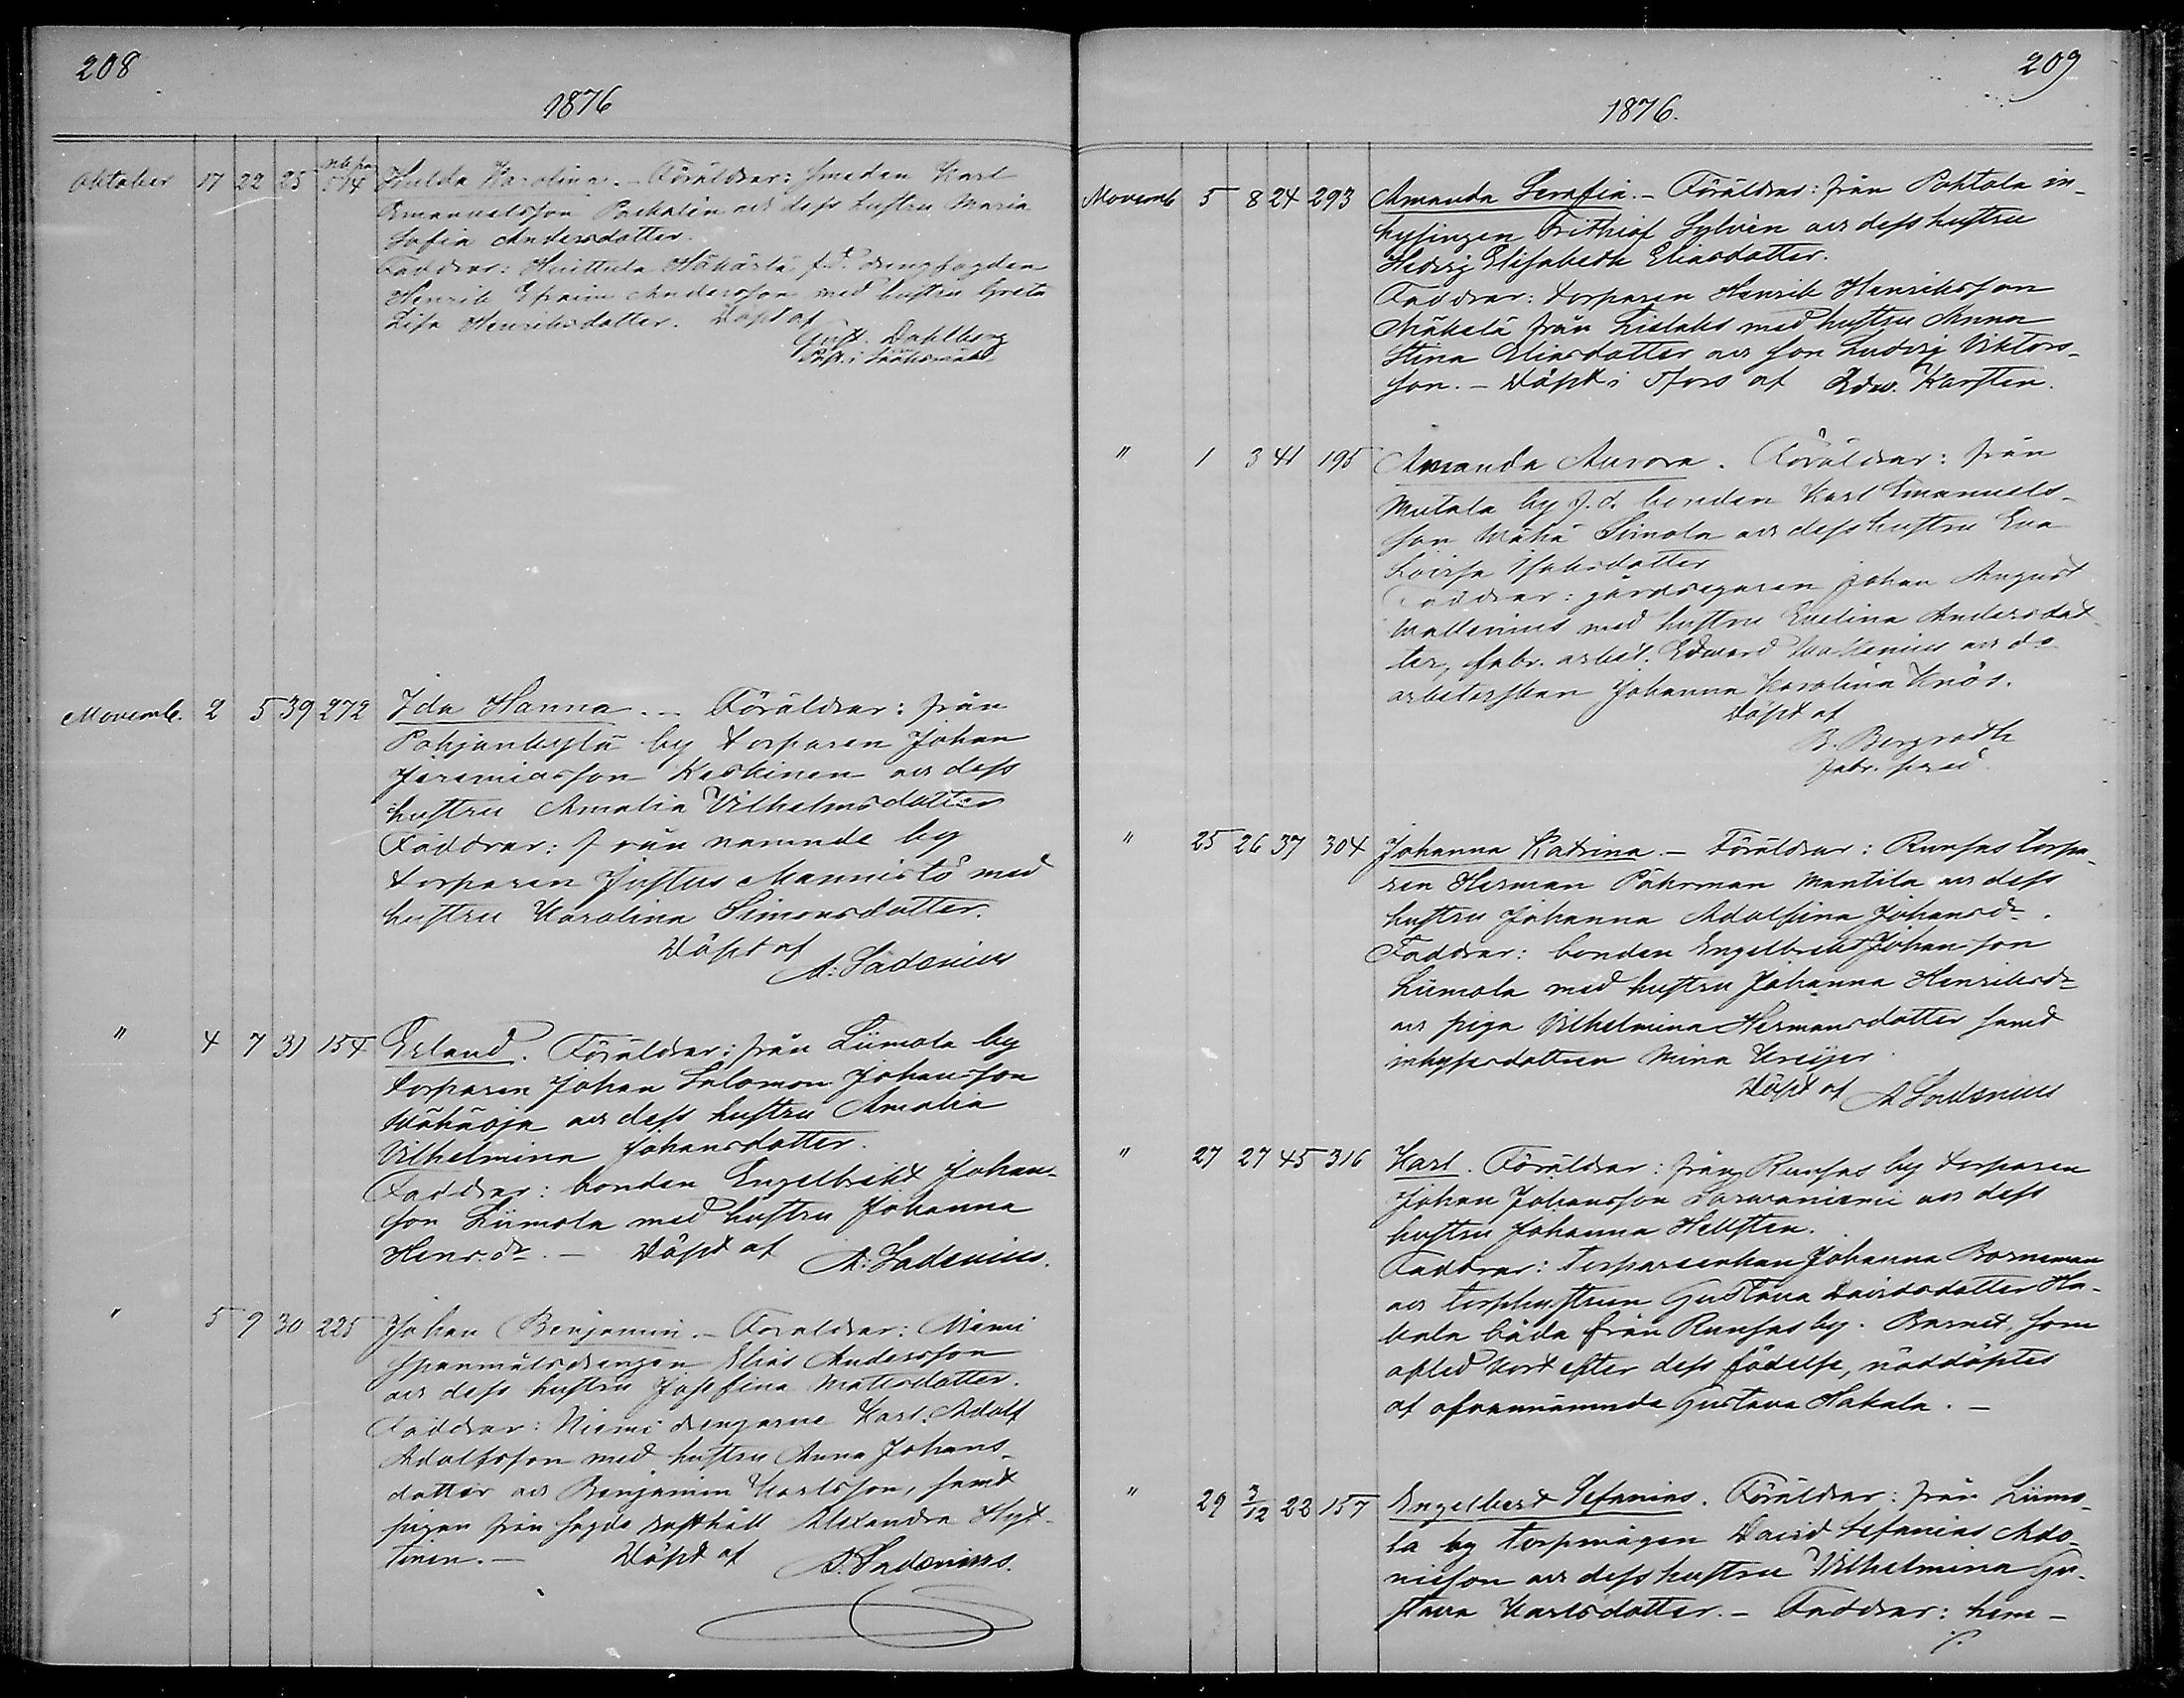 208
1876
Oktober 17 22 25 514 Hulda Karolina. - Föräldrar: smeden Karl
Emanuelsson Packalén och dess hustru Maria
Sofia Andersdotter.
Faddrar: Huittula Hähärlä f.d. drengfogden
Henrik Efraim Andersson med hustru Greta
Lisa Henriksdotter. Döpt af
Gust. Dahlberg
Past. i Sääksmäki
Novemb. 2 5 39 272 Ida Hanna. - Föräldrar: från
Pohjankylä by torparen Johan
Jeremiasson Keskinen och dess
hustru Amalia Vilhelmsdotter
Faddrar: från namnde by
torparen Justus Mannistö med
hustru Karolina Simonsdotter.
Döpt af
A: Ladenius
" 4 7 31 154 Erland. Föräldrar: från Liimola by
torparen Johan Salomon Johansson
Wähäoja och dess hustru Amalia
Vilhelmina Johansdotter.
Faddrar: bonden Engelbrekt Johan-
son Liimola med hustru Johanna
Henr. dr. - Döpt af A: Ladenius.
" 5 9 30 225 Johan Benjamin. - Föräldrar: Niemi
spanmålsdrengen Elias Andersson
och dess hustru Josefina Mattsdotter.
Faddrar: Niemi drengarne Karl Adolf
Adolfsson med hustru Anna Johans-
dotter och Benjamin Karlsson, samt
pigan från sagda rusthåll Alexandra Hyt-
tinen. - Döpt af A. Ladenius.
209
1876.
Novemb 5 8 24 293 Amanda Serafia. - Föräldrar: från Pohtola in-
hysingen Frithiof Sylvén och dess hustru
Hedvig Elisabeth Eliasdotter.
Faddrar: torparen Henrik Henriksson
Mäkelä från Lislaks med hustru Anna
Stina Eliasdotter och son Ludvig Viktors-
son. - Döpt i Tfors af Edw. Karsten.
" 1 3 41 195 Amanda Aurora. Föräldrar: från
Mutala by f.d. bonden Karl Emanuels-
son Wähä Simola och dess hustru Eva
Lovisa Isaksdotter
Faddrar: gårdsegaren Johan August
Wallenius med hustru Evelina Andersdot-
ter, fabr. arbet. Edward Wallenius och do
arbeterskan Johanna Karolina Knös.
Döpt af
B. Bergroth
fabr. pred.
" 25 26 37 304 Johanna Katrina. - Föräldrar: Runsas torpa-
ren Herman Påhrman Mantila och dess
hustru Johanna Adolfina Johansdr.
Faddrar: bonden Engelbrekt Johansson
Liimola med hustru Johanna Henriksdr
och piga Vilhelmina Hermansdotter samt
inhysesdottren Mina Kreijer.
Döpt af A Ladenius
" 27 27 45 316 Karl. Föräldrar: från Runsas by torparen
Johan Johansson Tarvaniemi och dess
hustru Johanna Hellsten.
Faddrar: torpareenkan Johanna Borneman
och torphustrun Gustava Davidsdotter Ha-
kala båda från Runsas by. Barnet, som
afled kort efter dess födelse, nöddöptes
af ofvannämnda Gustava Hakala. -
" 29 3/12 22 157 Engelbert Sefanias. Föräldrar: från Liimo-
la by torpmågen David Sefanias Ado-
nieson och dess hustru Vilhelmina Gu-
stava Karlsdotter. - Faddrar: hem-
./.